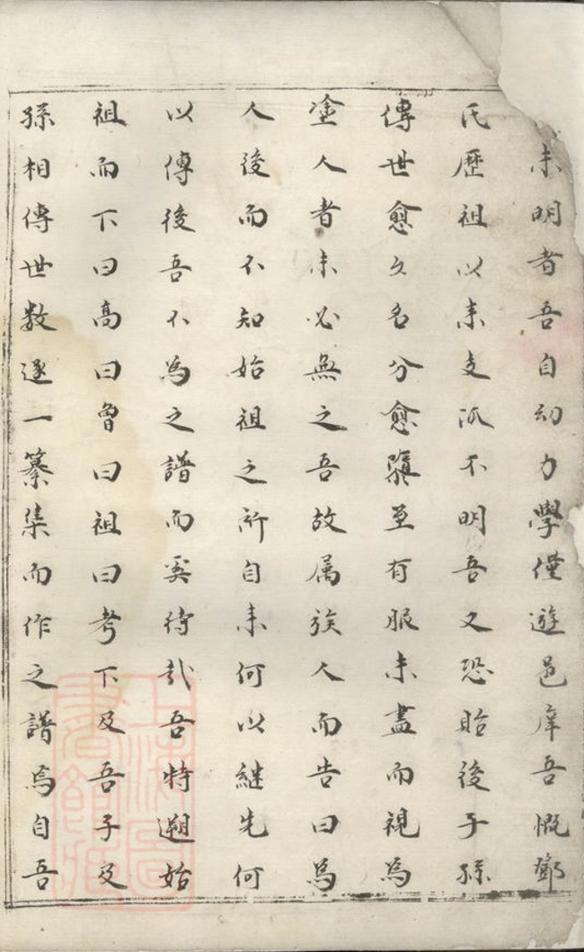 未明者吾自幼力學僅遊邑庠吾慨
氏歷祖以来支派不明吾又恐貽後子孫
傳世愈久名分愈至有服未盡而視為
塗人者未必無之吾故属族人而告曰為
人後而不知始祖之所自来何以継先何
以傳後吾不為之譜而奚待哉吾特遡始
祖而下曰高曰曾曰祖曰考下及吾子及
孫相傳世数逐一纂集而作之譜焉自吾
上海圖書館藏